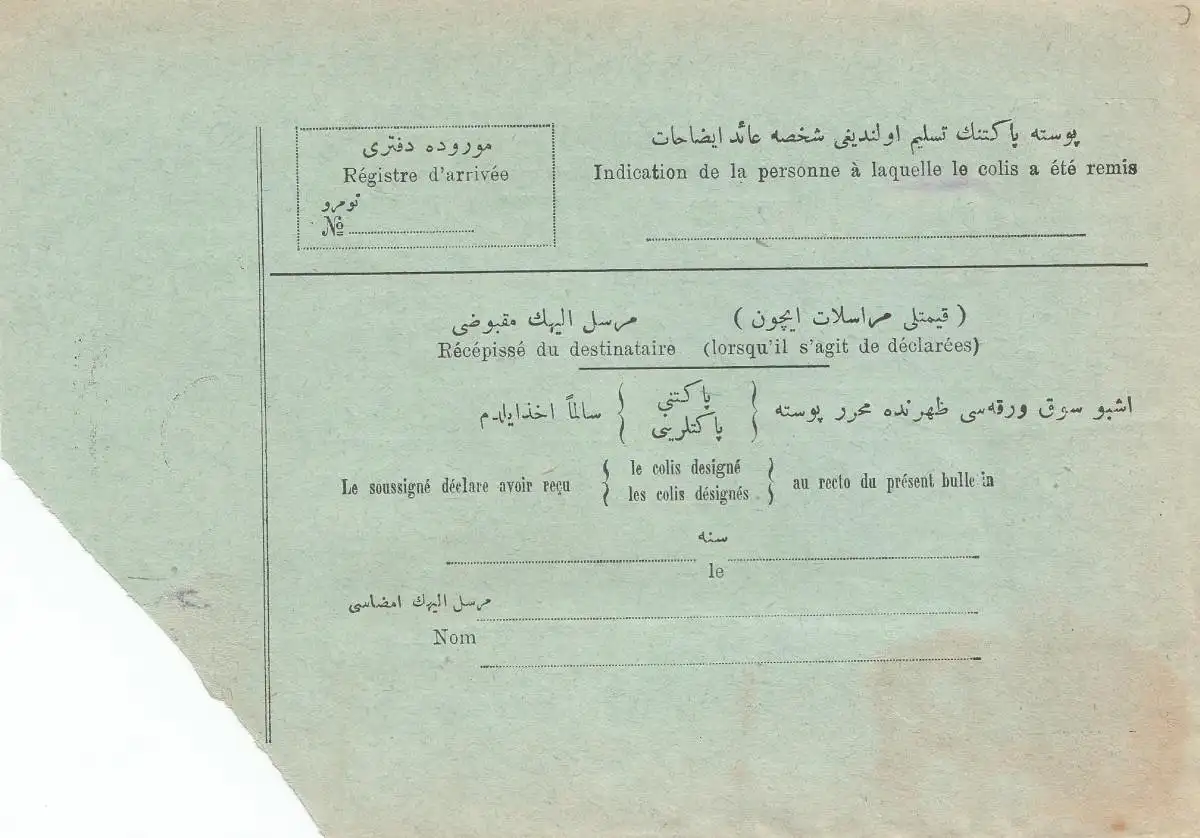 موروده دفتری
Régistre d'arrivée
نومرو
№
پوسته پاكتنك تسليم اولنديغی شخصه عائد ايضاحات
Indication de la personne à laquelle le colis a été remis
مرسل اليهك مقبوضی ( قيمتلی مراسلات ايچون )
Récépissé du destinataire (lorsqu'il s'agit de déclarées)
اشبو سوق ورقه‌سی ظهرنده محرر پوسته { پاكتنی / پاكتلرينی } سالماً اخذ ايلدم
Le soussigné déclare avoir reçu { le colis designé / les colis désignés } au recto du présent bulle in
سنه
le
مرسل اليهك امضاسی
Nom